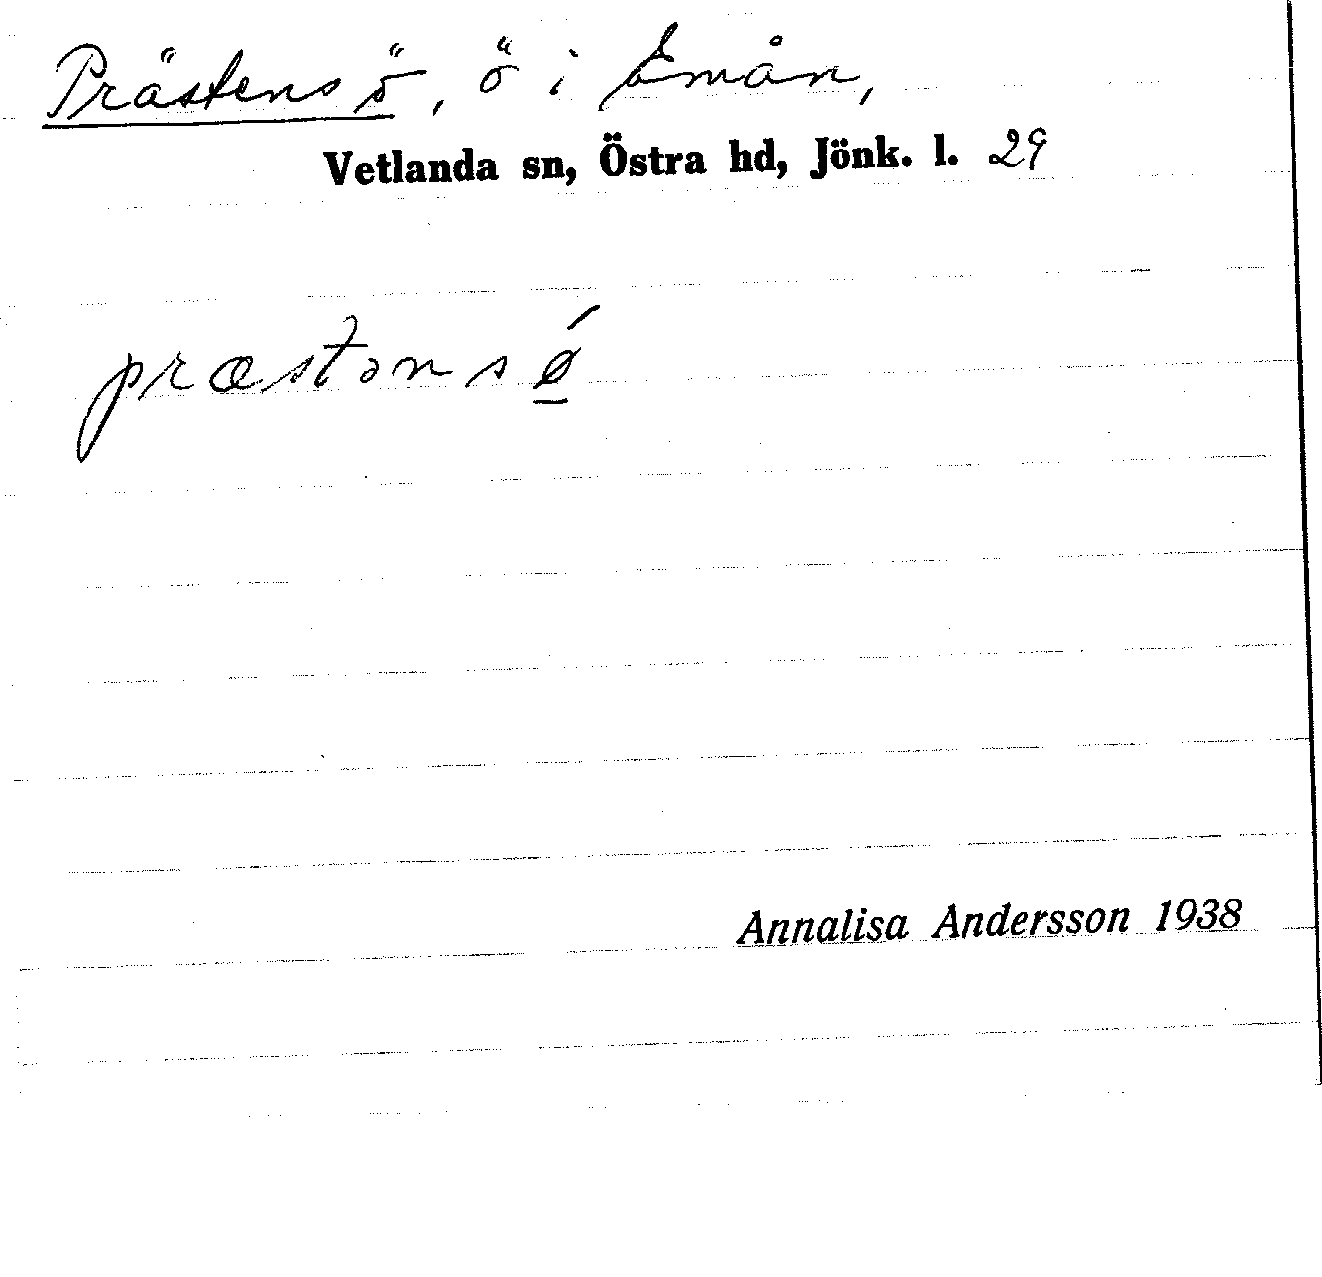 Prästens ö, ö i Emån,
Vetlanda sn, Östra hd, Jönk. l. 29
præstəns ǿ̲
Annalisa Andersson 1938